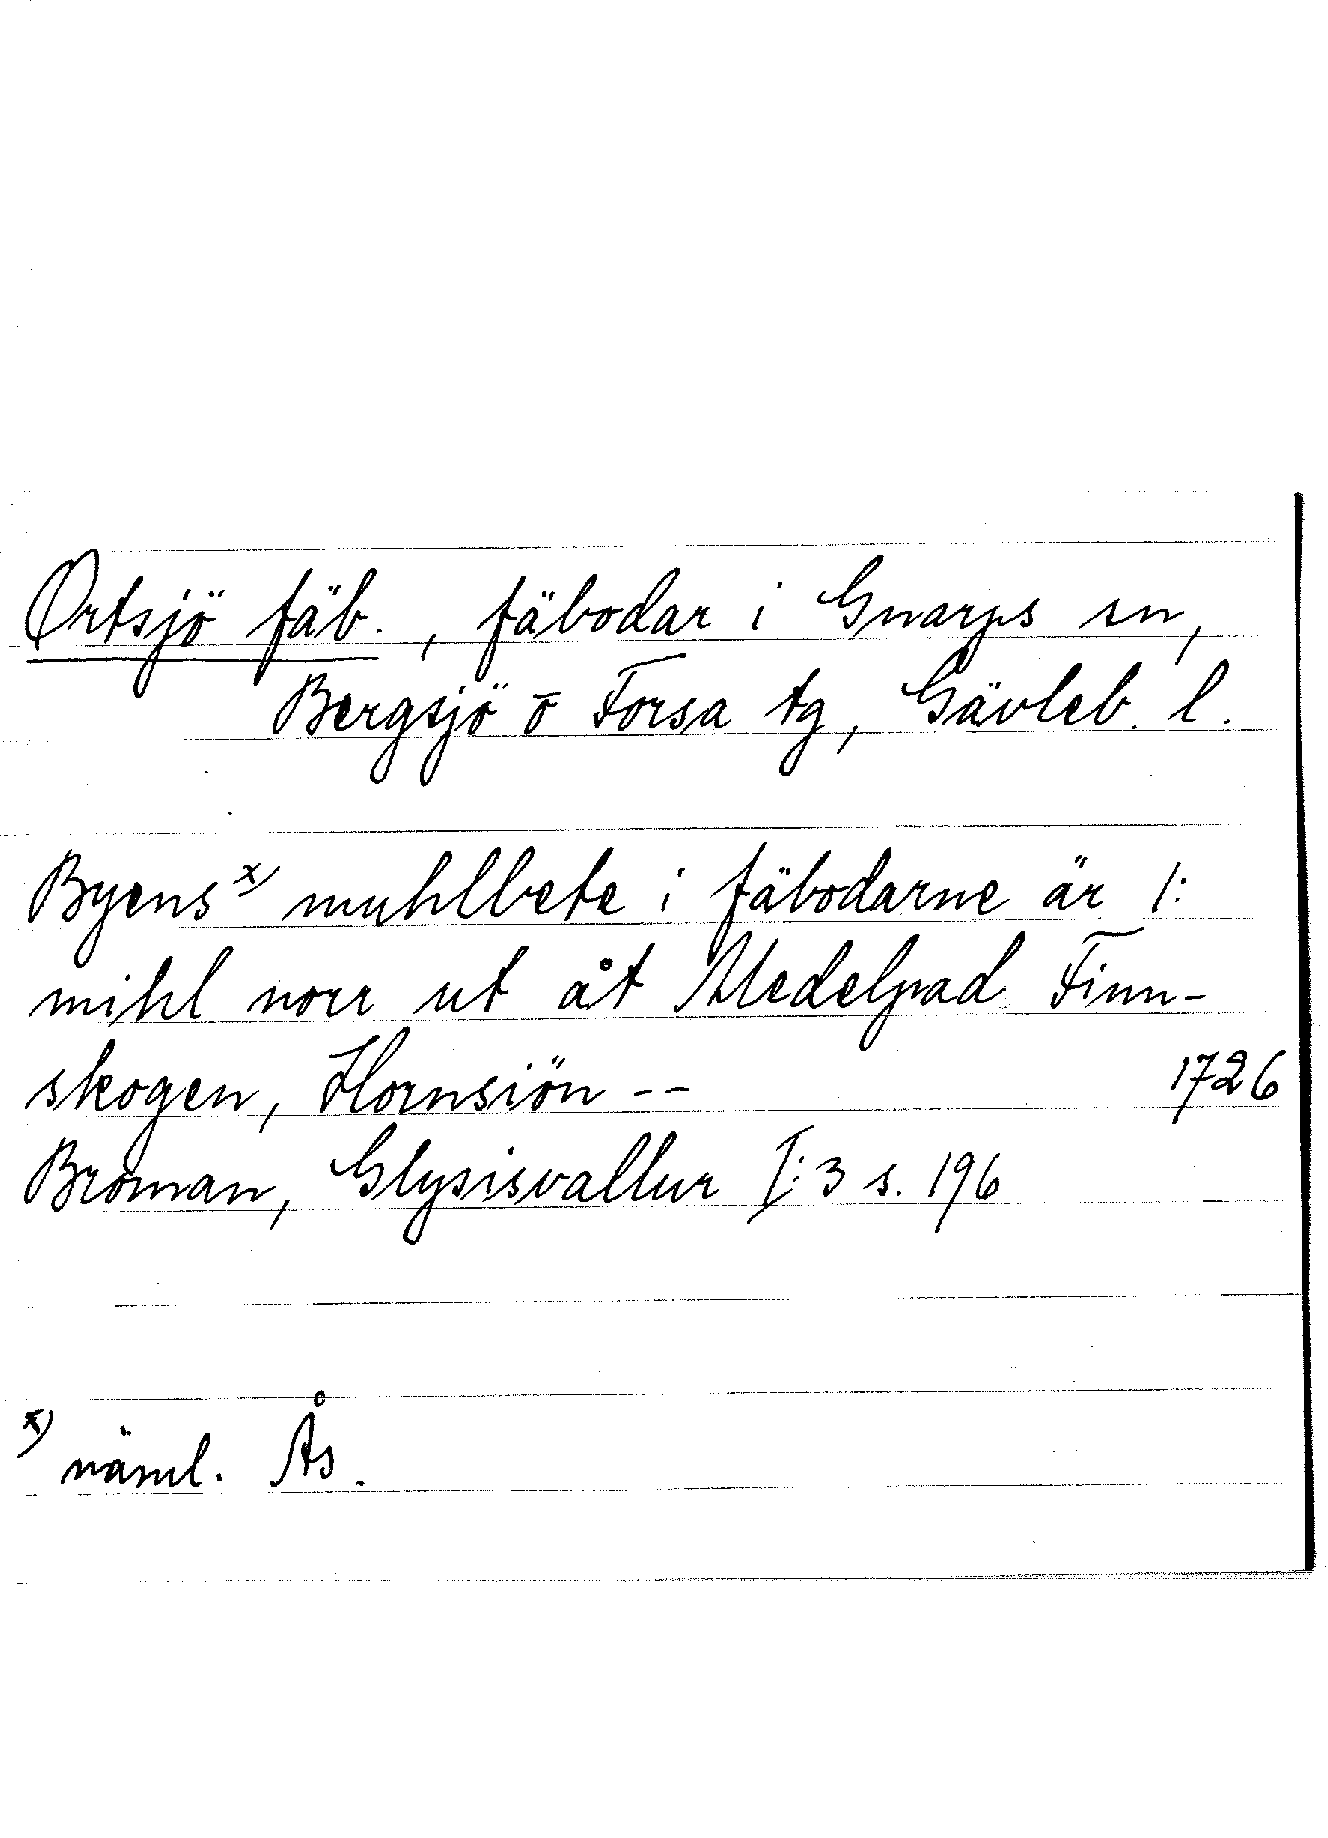 Ortsjö fäb., fäbodar i Gnarps sn,
Bergsjö o Forsa tg, Gävleb. l.
Byens x) muhlbete i fäbodarne är 1:
mihl norr ut åt Medelpad Finn-
skogen, Hornsiön -- 1726
Broman, Glysisvallur I:3 s. 196
x) näml. Ås.